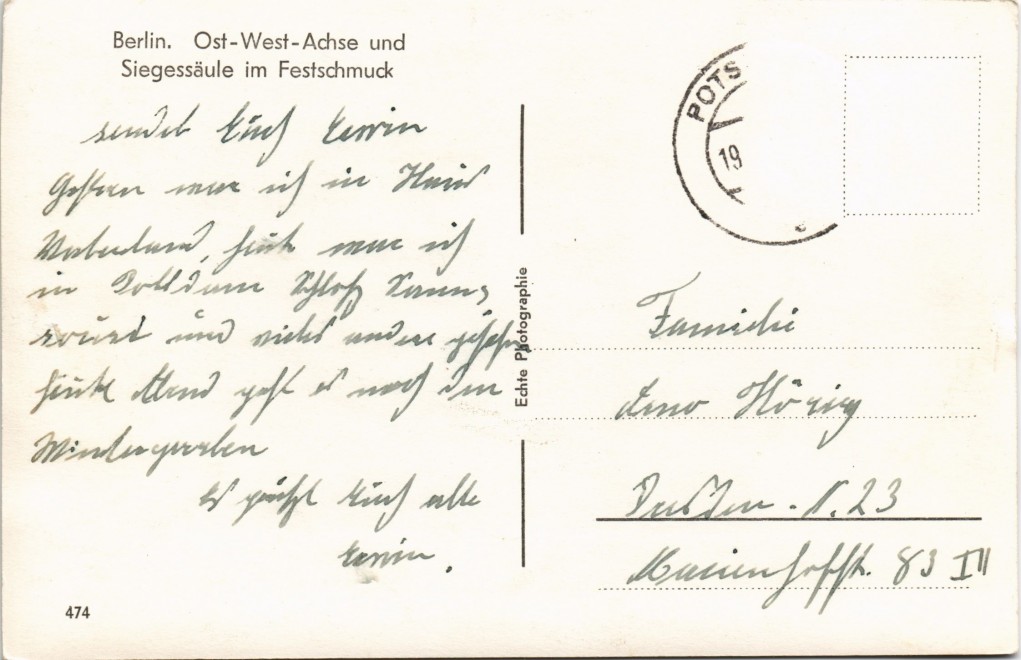 Berlin. Ost-West-Achse und
Siegessäule im Festschmuck
sendet Euch Erwin
Gestern war ich in Haus
Vaterland, heute war ich
in Potsdam Schloß Sans-
souci und vieles andere gesehen
heute Abend geht es nach dem
Wintergarten
Es grüßt Euch alle
Erwin.
474
Echte Photographie
POTS
19
Familie
Arno
Dresden. N. 23
83 III